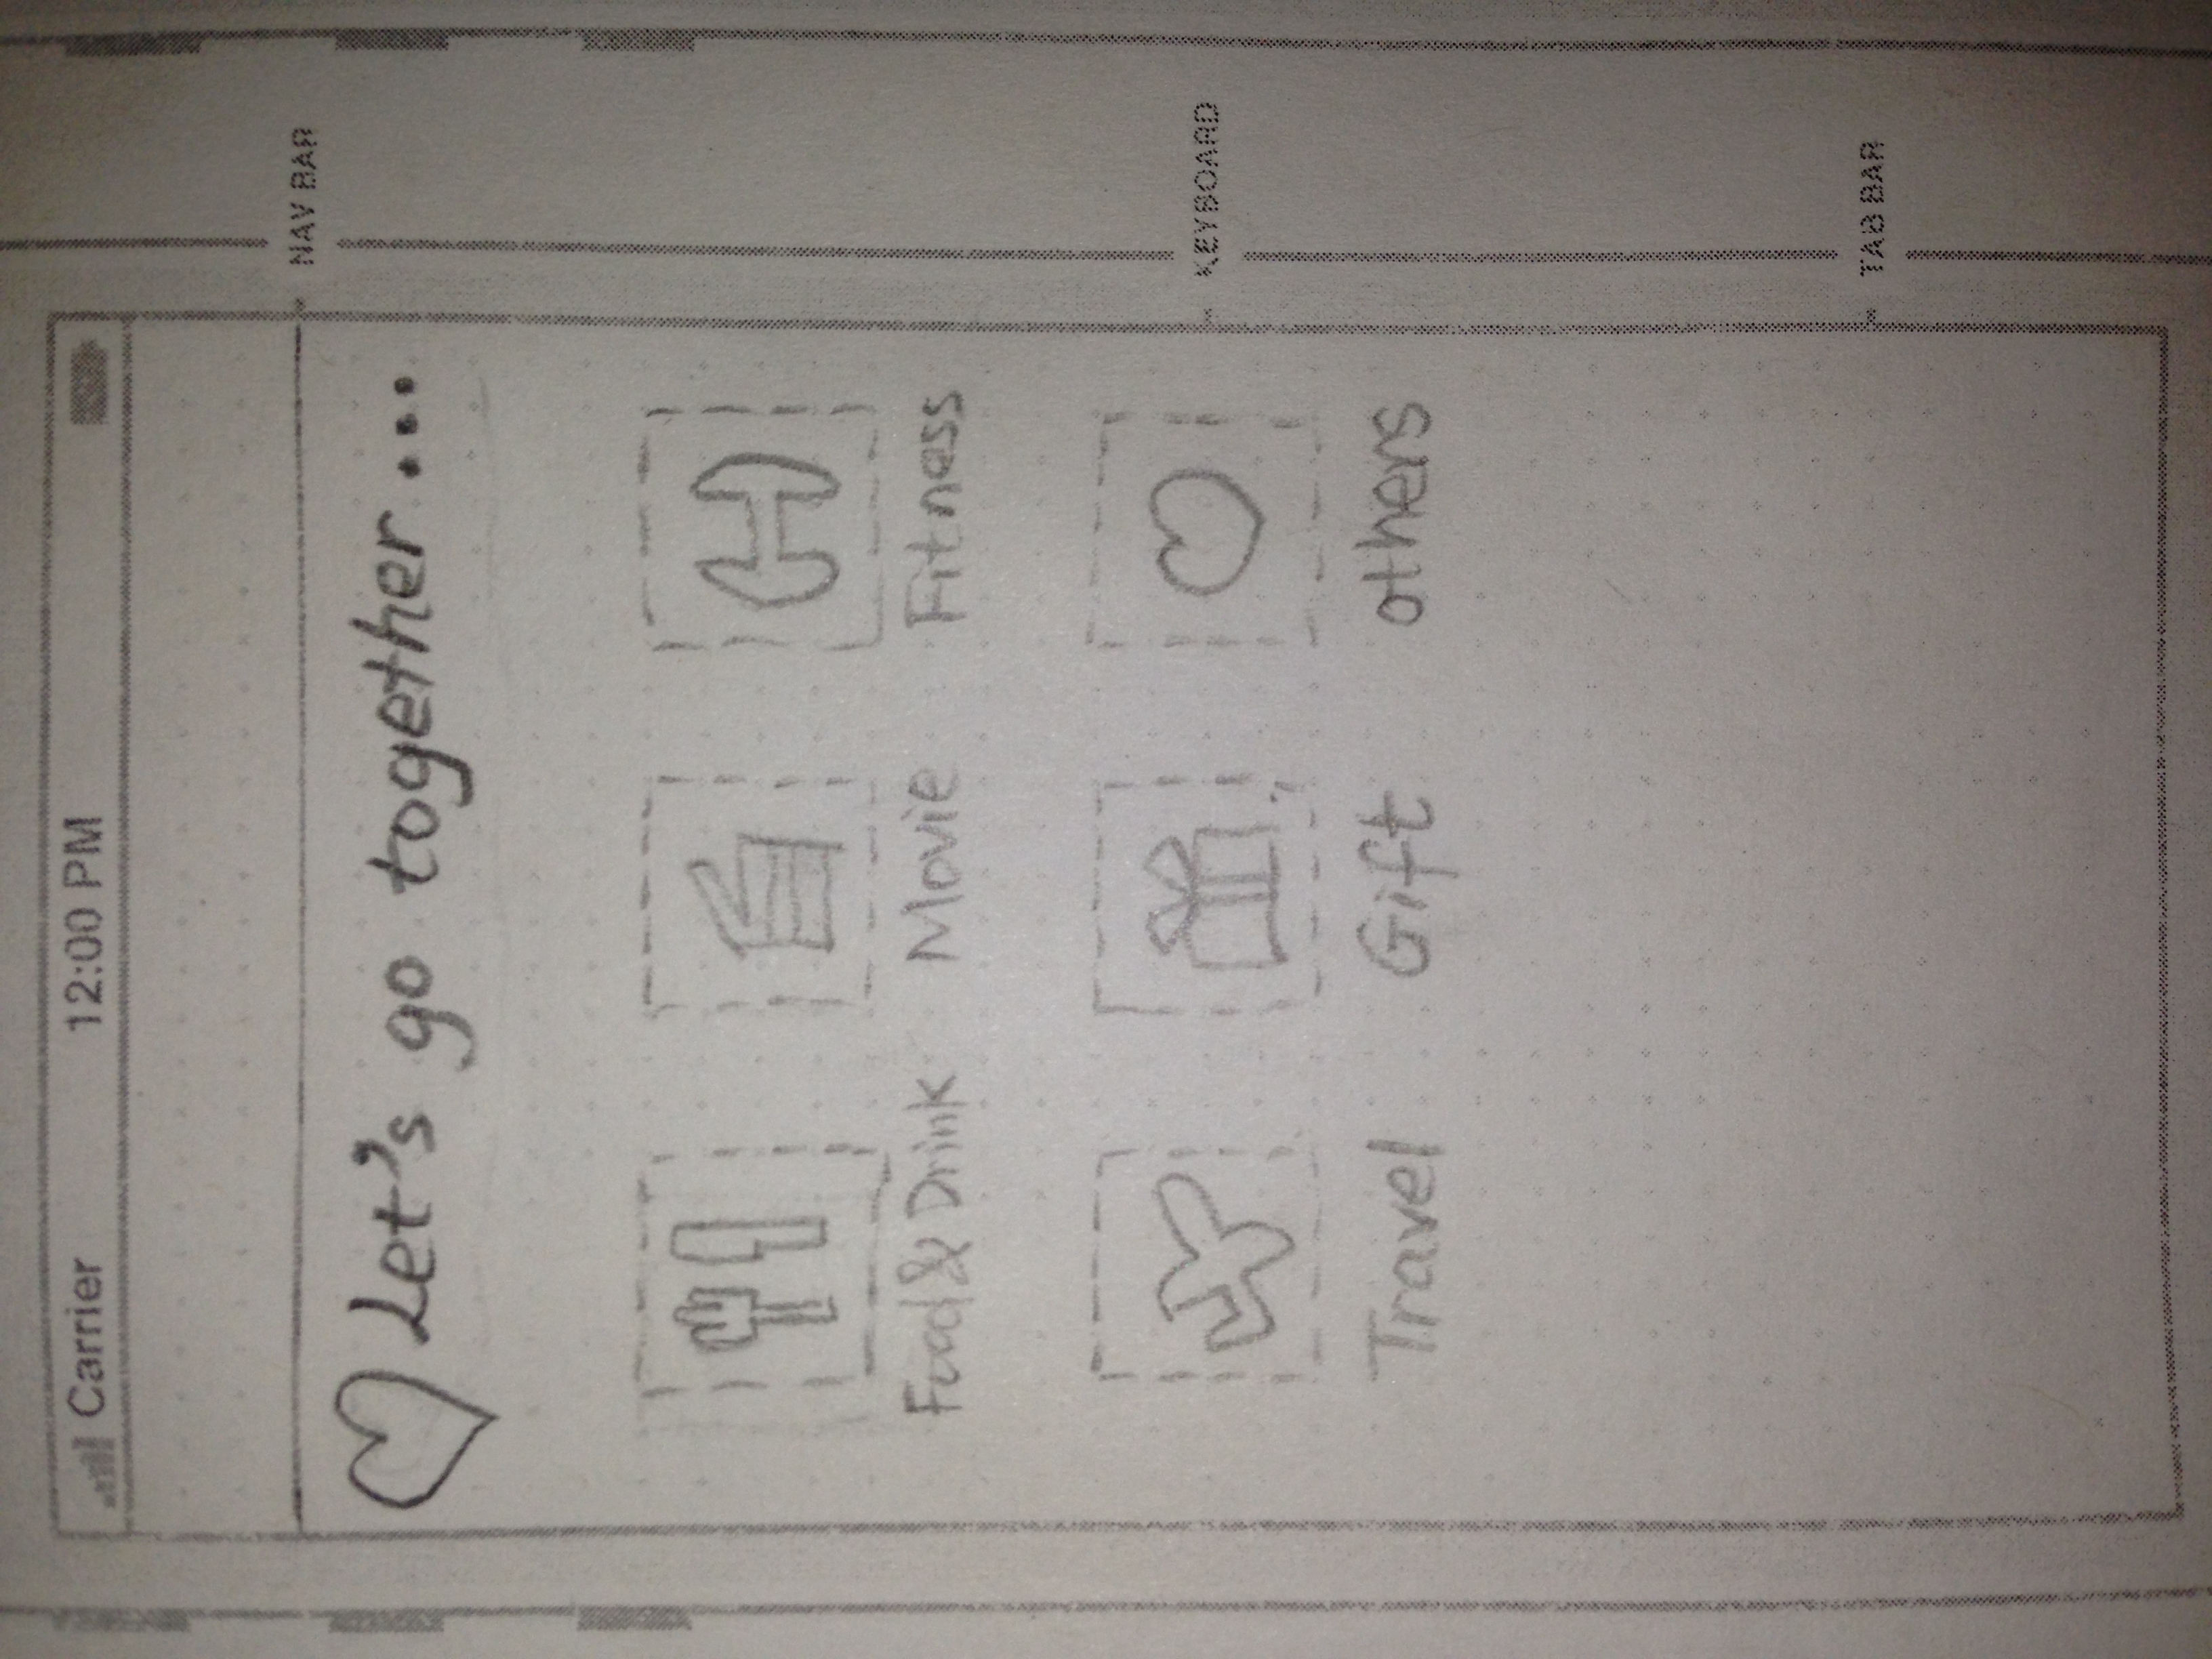 Carrier 12:00 PM
NAV BAR
Let's go together...
Food & Drink Movie Fitness
KEYBOARD
Travel Gift others
TAB BAR